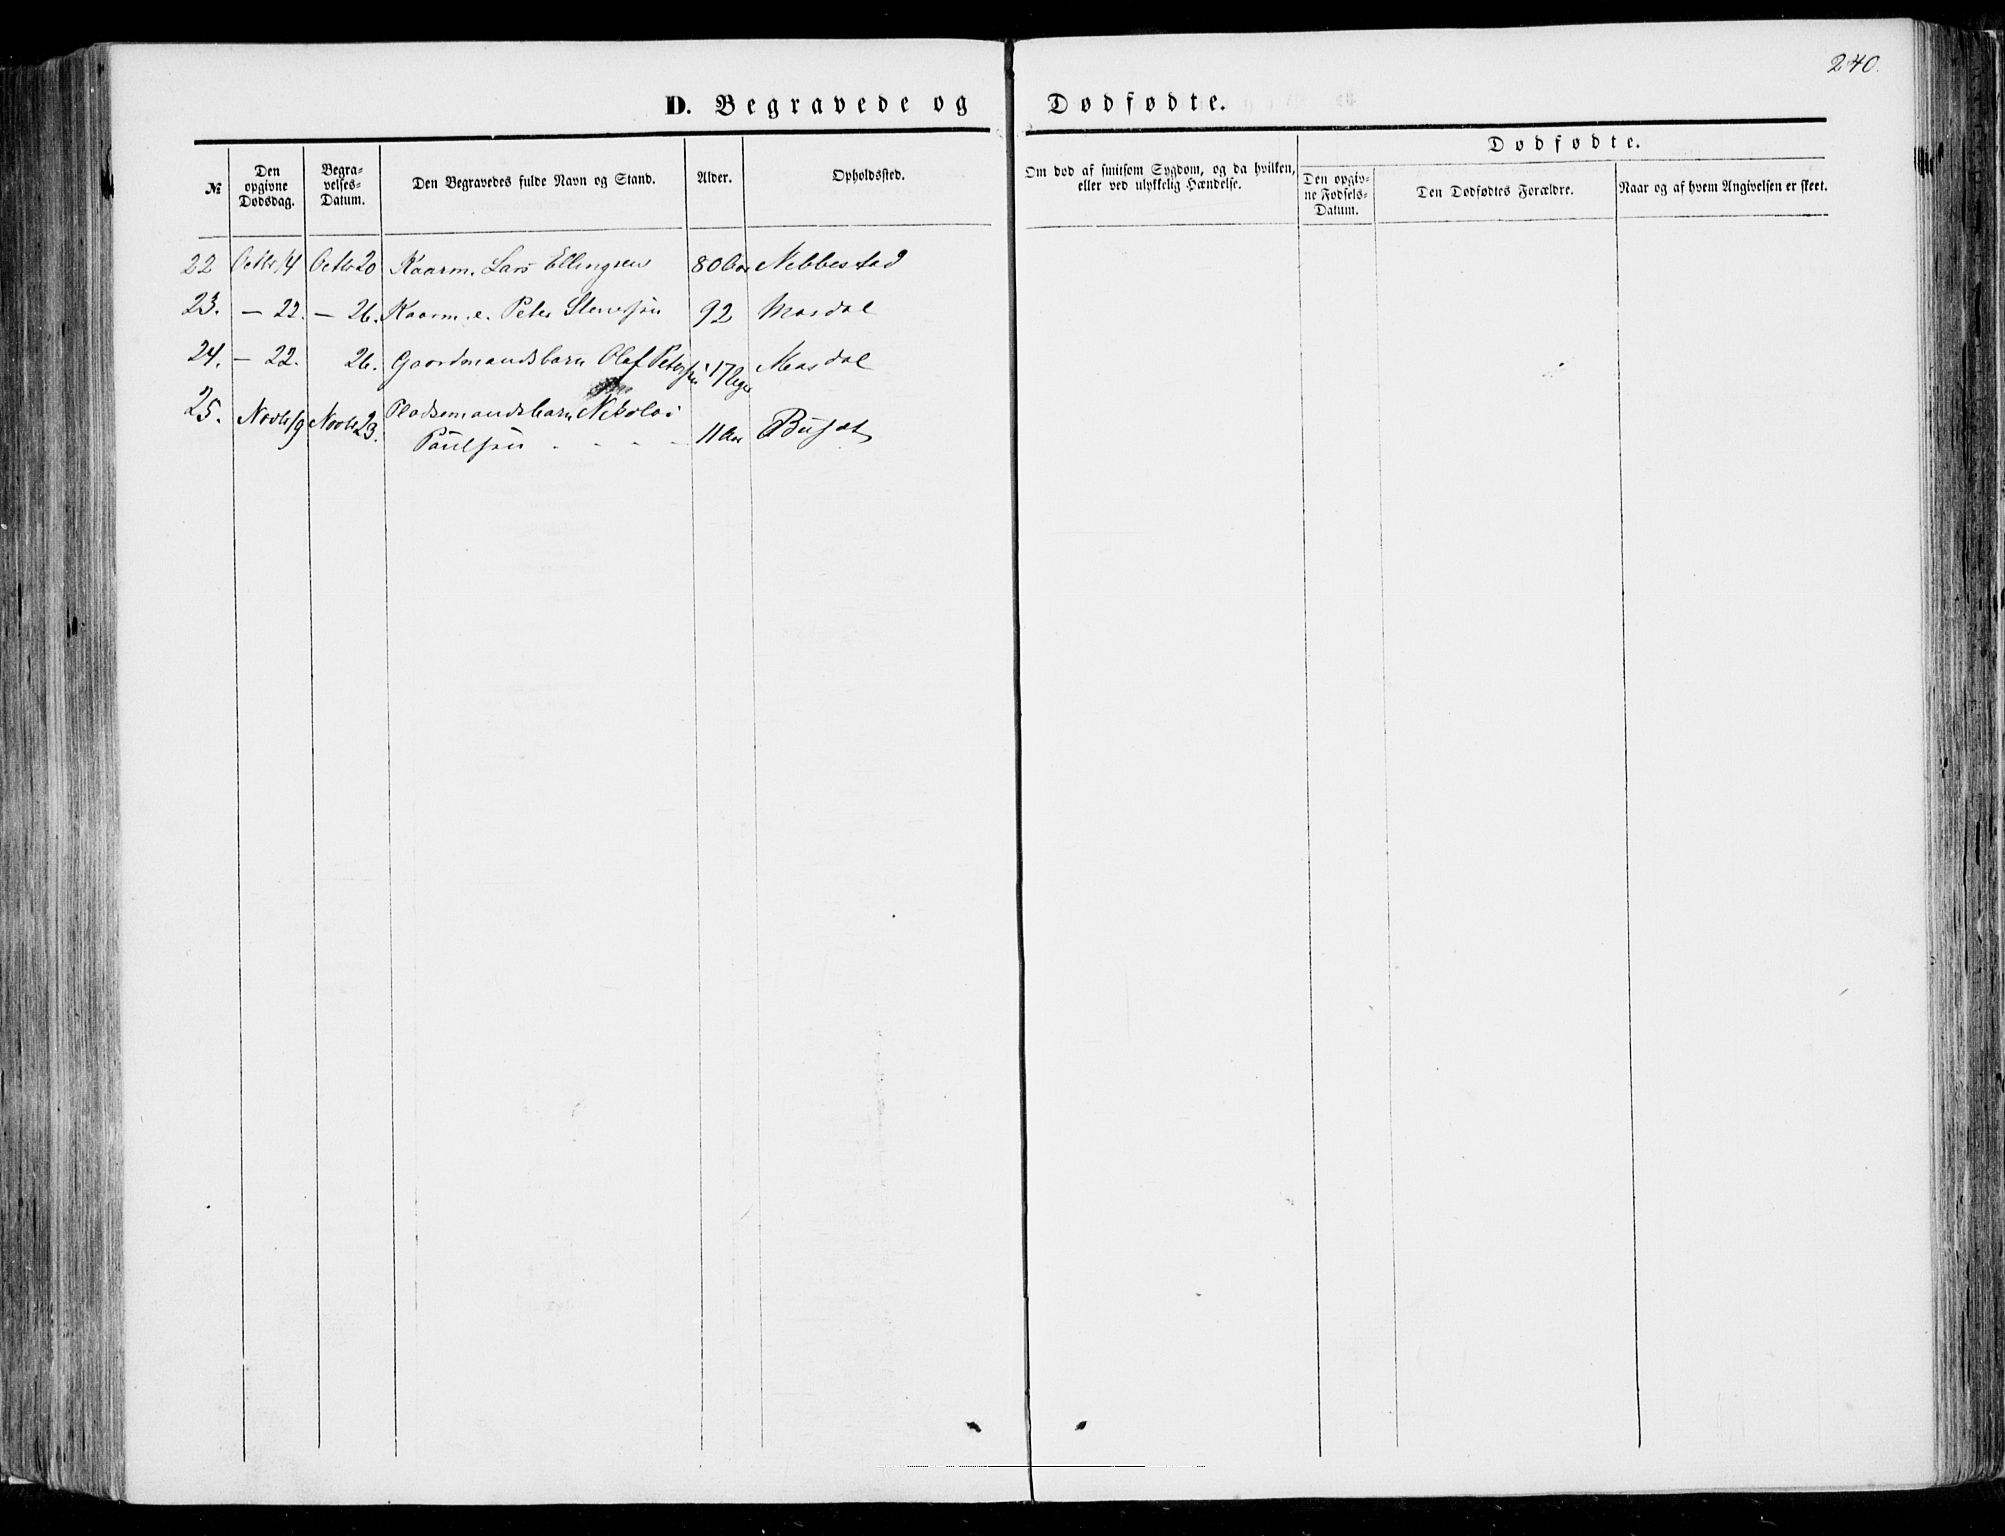 240.
D. Begravede og Dødfødte.
№
Den opgivne Dødsdag.
Begra-velses-Datum.
Den Begravedes fulde Navn og Stand.
Alder.
Opholdssted.
Om død af smitsom Sygdom, og da hvilken, eller ved ulykkelig Hændelse.
Dødfødte.
Den opgiv-ne Fødsels-Datum.
Den Dødfødtes Forældre.
Naar og af hvem Angivelsen er skeet.
22 Octbr 14 Octbr 20 Kaarm. Lars Ellingsen 80 Aar Nebbestad
23. — 22. — 26. Kaarm. e. Peter Stenersøn 92 Masdal
24. — 22. 26. Gaardmandsbarn Olaf Petersen 17 Uger Masdal
25. Novbr 19 Novbr 23. Pladsemandsbarn Nikolai
Paulsøn - - - - 11 Aar